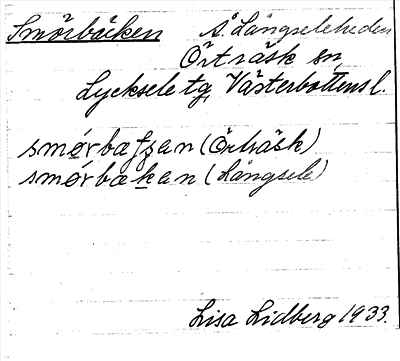 Smörbäcken s. Långseleheden
Örträsk sn
Lycksele tg, Västerbottens l.
smørbæfʂan (Örträsk)
smørbækan (Långsele)
Lisa Lidberg 1933.